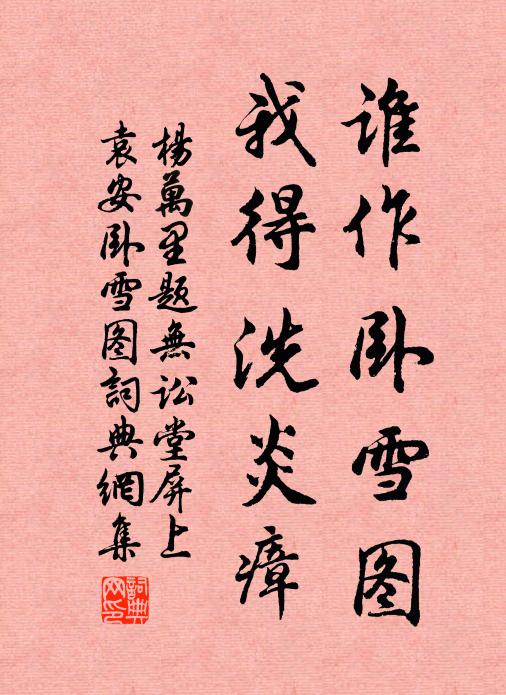 谁作卧雪图
我得洗炎瘴
楊萬里题無讼堂屏上
袁安卧雪图詞典網集
詞典
网印